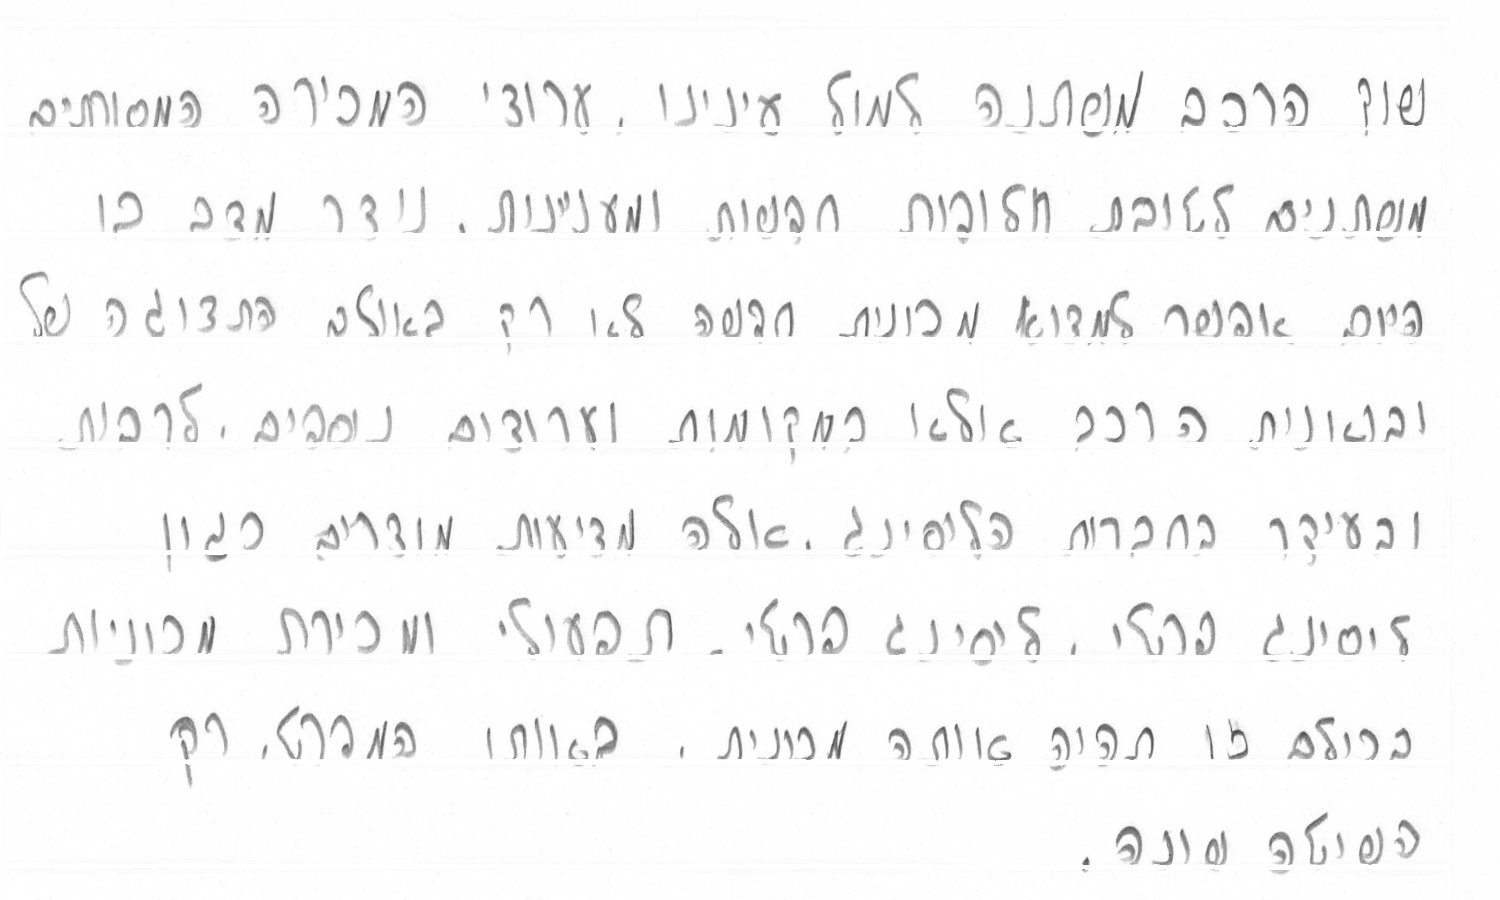 שוק הרכב משתנה למול עינינו. ערוצי המכירה המסורתיים
משתנים לטובת חלופות חדשות ומעניינות. נוצר מצב בו
היום אפשר למצוא מכונית חדשה לא רק באולם התצוגה של
יבואנית הרכב אלא במקומות וערוצים נוספים. לרבות
ובעיקר בחברות הליסינג. אלה מציעות מוצרים כגון
ליסינג פרטי, ליסינג פרטי. תפעולי ומכירת מכוניות
בכולם זו תהיה אותה מכונית. באותו המפרט, רק
השיטה שונה.